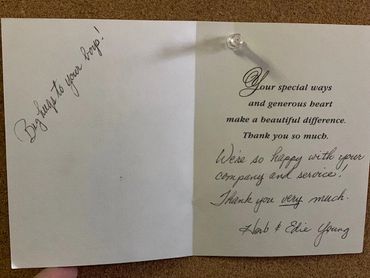 Big hugs to your boys!
Your special ways
and generous heart
make a beautiful difference.
Thank you so much.
We're so happy with your
company and service!
Thank you very much.
Herb & Edie Young